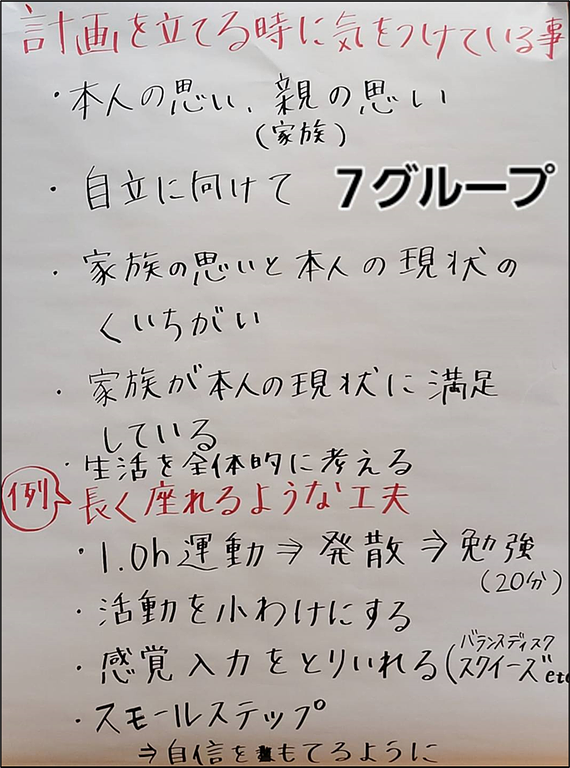 計画を立てる時に気をつけている事
・本人の思い、親の思い
(家族)
・自立に向けて
7グループ
・家族の思いと本人の現状の
くいちがい
・家族が本人の現状に満足
している
・生活を全体的に考える
例 長く座れるような工夫
・1.0h運動⇒発散⇒勉強
(20分)
・活動を小わけにする
バランスディスク
・感覚入力をとりいれる(スクイーズetc
・スモールステップ
⇒自信をもてるように